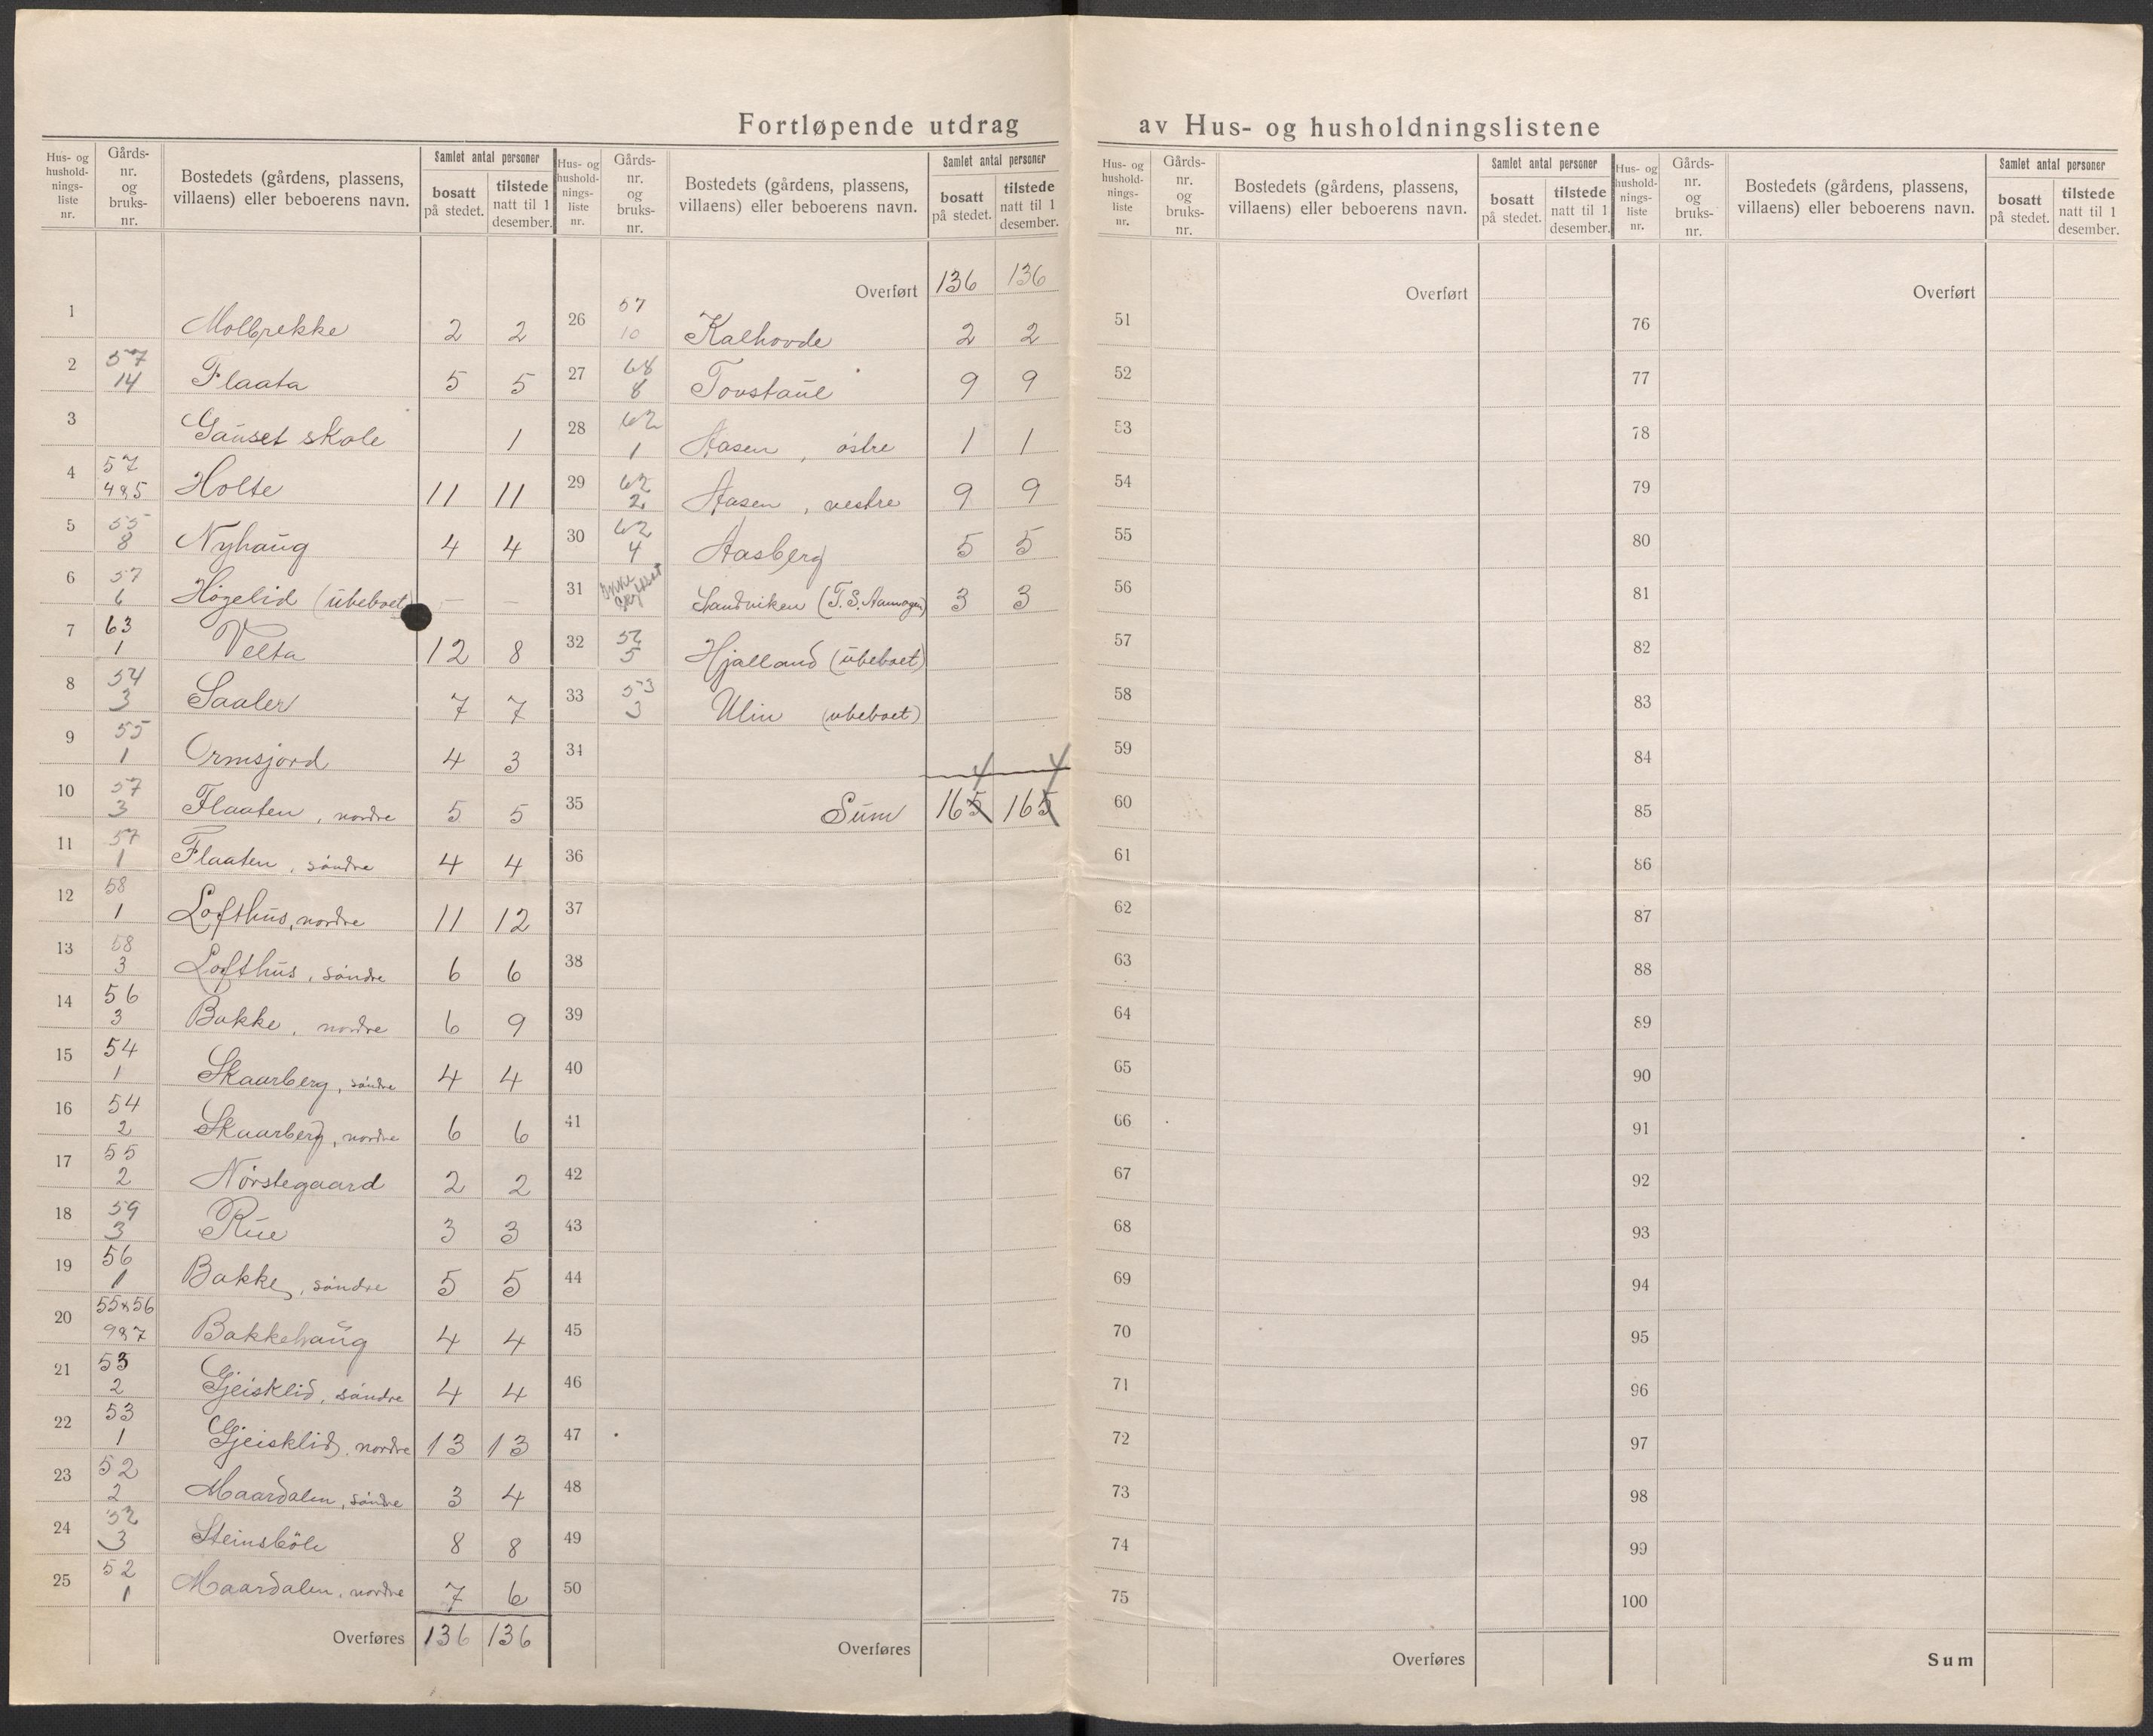 Fortløpende utdrag av Hus- og husholdningslistene
Hus- og husholdnings-liste nr. | Gårds-nr. og bruks-nr. | Bostedets (gårdens, plassens, villaens) eller beboerens navn. | Samlet antal personer | bosatt på stedet. | tilstede natt til 1 desember.
1 Molbrekke 2 2
2 57 14 Flaata 5 5
3 Gauset skole 1
4 57 4&5 Holte 11 11
5 55 8 Nyhaug 4 4
6 57 6 Høgelid (ubeboet) — —
7 63 1 Velta 12 8
8 54 3 Saaler 7 7
9 55 1 Ormsjord 4 3
10 57 3 Flaaten, nordre 5 5
11 57 1 Flaaten, søndre 4 4
12 58 1 Lofthus, nordre 11 12
13 58 3 Lofthus, søndre 6 6
14 56 3 Bakke, nordre 6 9
15 54 1 Skaarberg, søndre 4 4
16 54 2 Skaarberg, nordre 6 6
17 55 2 Nørstegaard 2 2
18 59 3 Rue 3 3
19 56 1 Bakke, søndre 5 5
20 55&56 9&7 Bakkehaug 4 4
21 53 2 Gjeisklid, søndre 4 4
22 53 1 Gjeisklid, nordre 13 13
23 52 2 Maardalen, søndre 3 4
24 52 3 Steinsböle 8 8
25 52 1 Maardalen, nordre 7 6
Overføres 136 136
Hus- og husholdnings-liste nr. | Gårds-nr. og bruks-nr. | Bostedets (gårdens, plassens, villaens) eller beboerens navn. | Samlet antal personer | bosatt på stedet. | tilstede natt til 1 desember.
Overført 136 136
26 57 10 Kalhovde 2 2
27 68 8 Tovstaul 9 9
28 62 1 Aasen, østre 1 1
29 62 2 Aasen, vestre 9 9
30 62 4 Aasberg 5 5
31 Ikke Sandviken (T. S. 3 3
32 52 5 Hjalland (ubeboet)
33 53 3 Ulin (ubeboet)
34 4 4
35 Sum 165 165
36
37
38
39
40
41
42
43
44
45
46
47
48
49
50
Overføres
Hus- og husholdnings-liste nr. | Gårds-nr. og bruks-nr. | Bostedets (gårdens, plassens, villaens) eller beboerens navn. | Samlet antal personer | bosatt på stedet. | tilstede natt til 1 desember.
Overført
51
52
53
54
55
56
57
58
59
60
61
62
63
64
65
66
67
68
69
70
71
72
73
74
75
Overføres
Hus- og husholdnings-liste nr. | Gårds-nr. og bruks-nr. | Bostedets (gårdens, plassens, villaens) eller beboerens navn. | Samlet antal personer | bosatt på stedet. | tilstede natt til 1 desember.
Overført
76
77
78
79
80
81
82
83
84
85
86
87
88
89
90
91
92
93
94
95
96
97
98
99
100
Sum